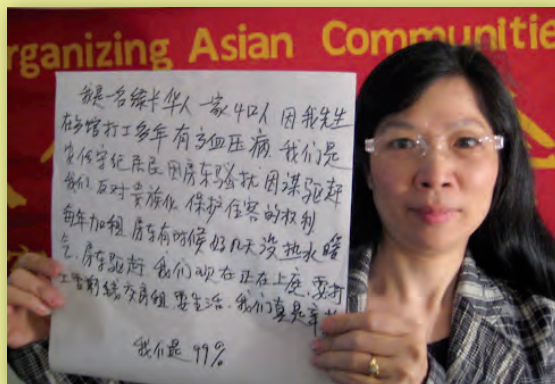 rganizing Asian Communitie
我是一名绿卡华人 一家4口人 因我先生
在歺馆打工多年 有高血压病. 我们是
守纪居民 因房东骚扰 因谋驱赶
我们. 反对贵族化 保护住客的权利
每年加租. 房东有时候好几天没热水暖
气. 房东驱赶. 我们现在正在上庭. 要打
工 钱交房租. 要生活. 我们真是辛
我们是 99%